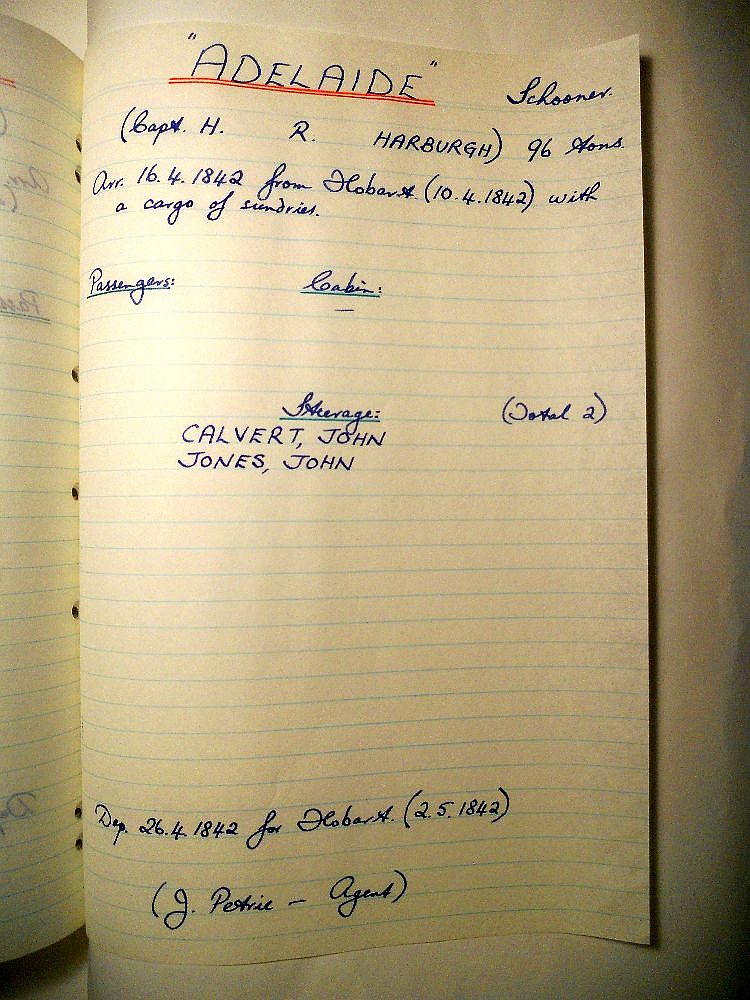 "ADELAIDE" Schooner.
(Capt. H. R. HARBURGH) 96 tons.
Arr. 16.4.1842 from Hobart. (10.4.1842) with
a cargo of sundries.
Passengers: Cabin:
—
Steerage: (Total 2)
CALVERT, JOHN
JONES, JOHN
Dep. 26.4.1842 for Hobart. (2.5.1842)
(J. Petrie — Agent)